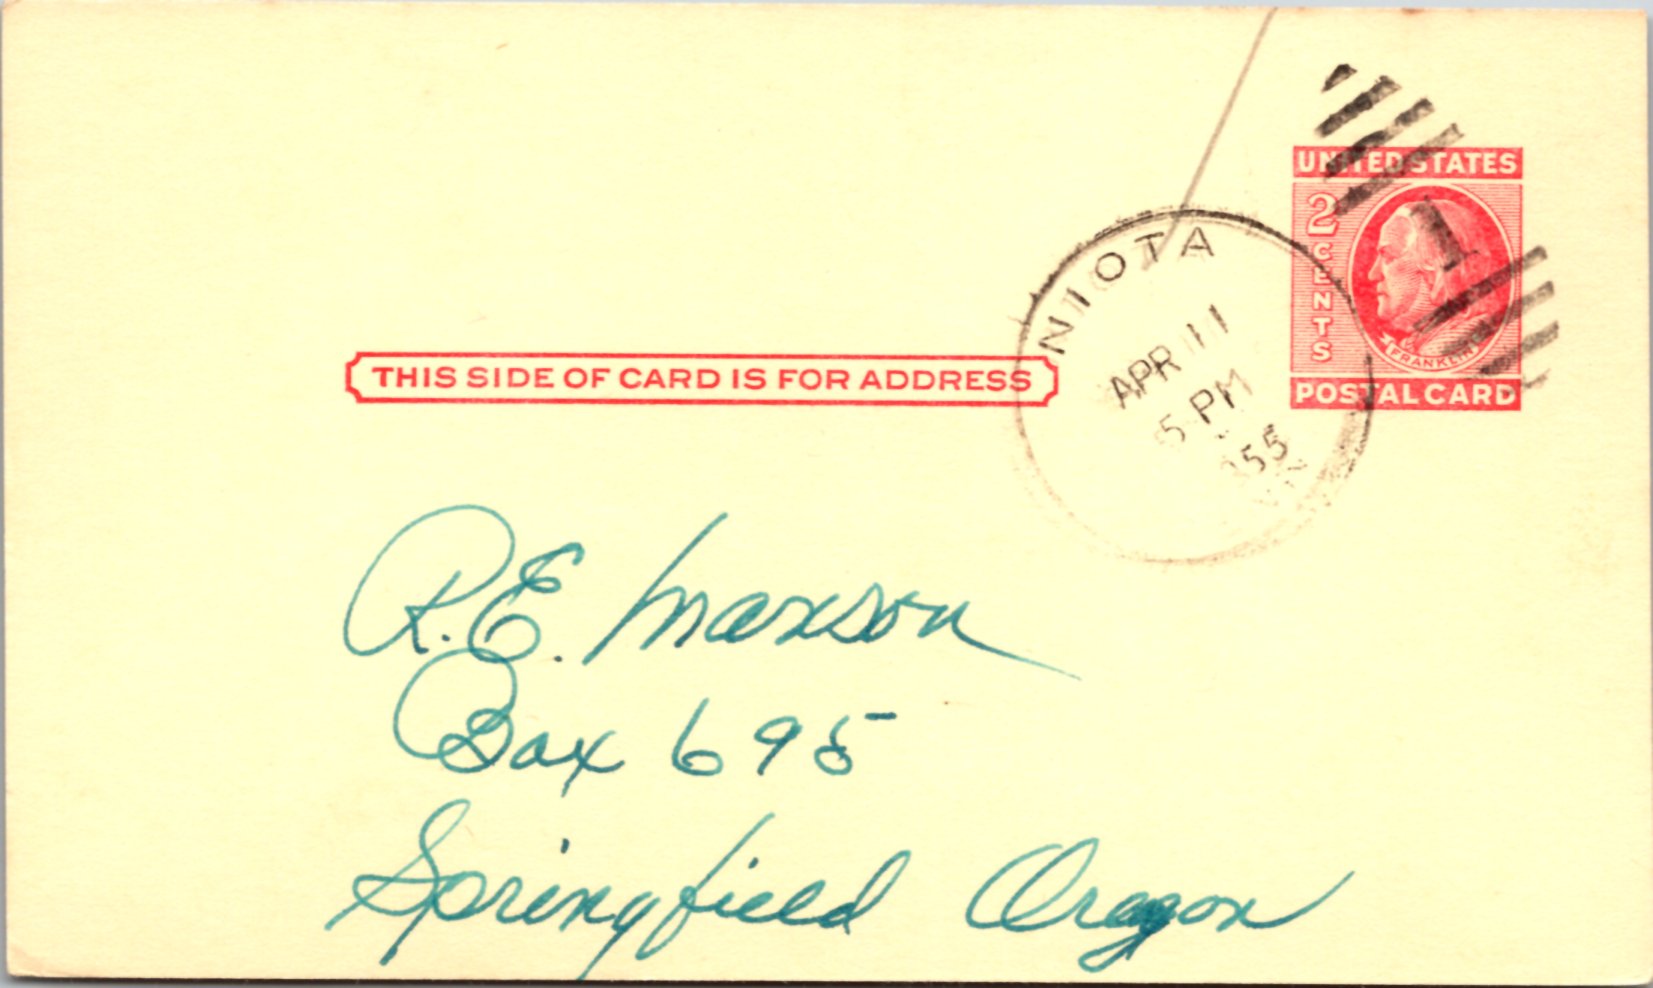 UNITED STATES
2 CENTS
FRANKLIN
POSTAL CARD
1
NIOTA
APR 11
5 PM
1955
THIS SIDE OF CARD IS FOR ADDRESS
R. E. Maxson
Box 695
Springfield Oregon